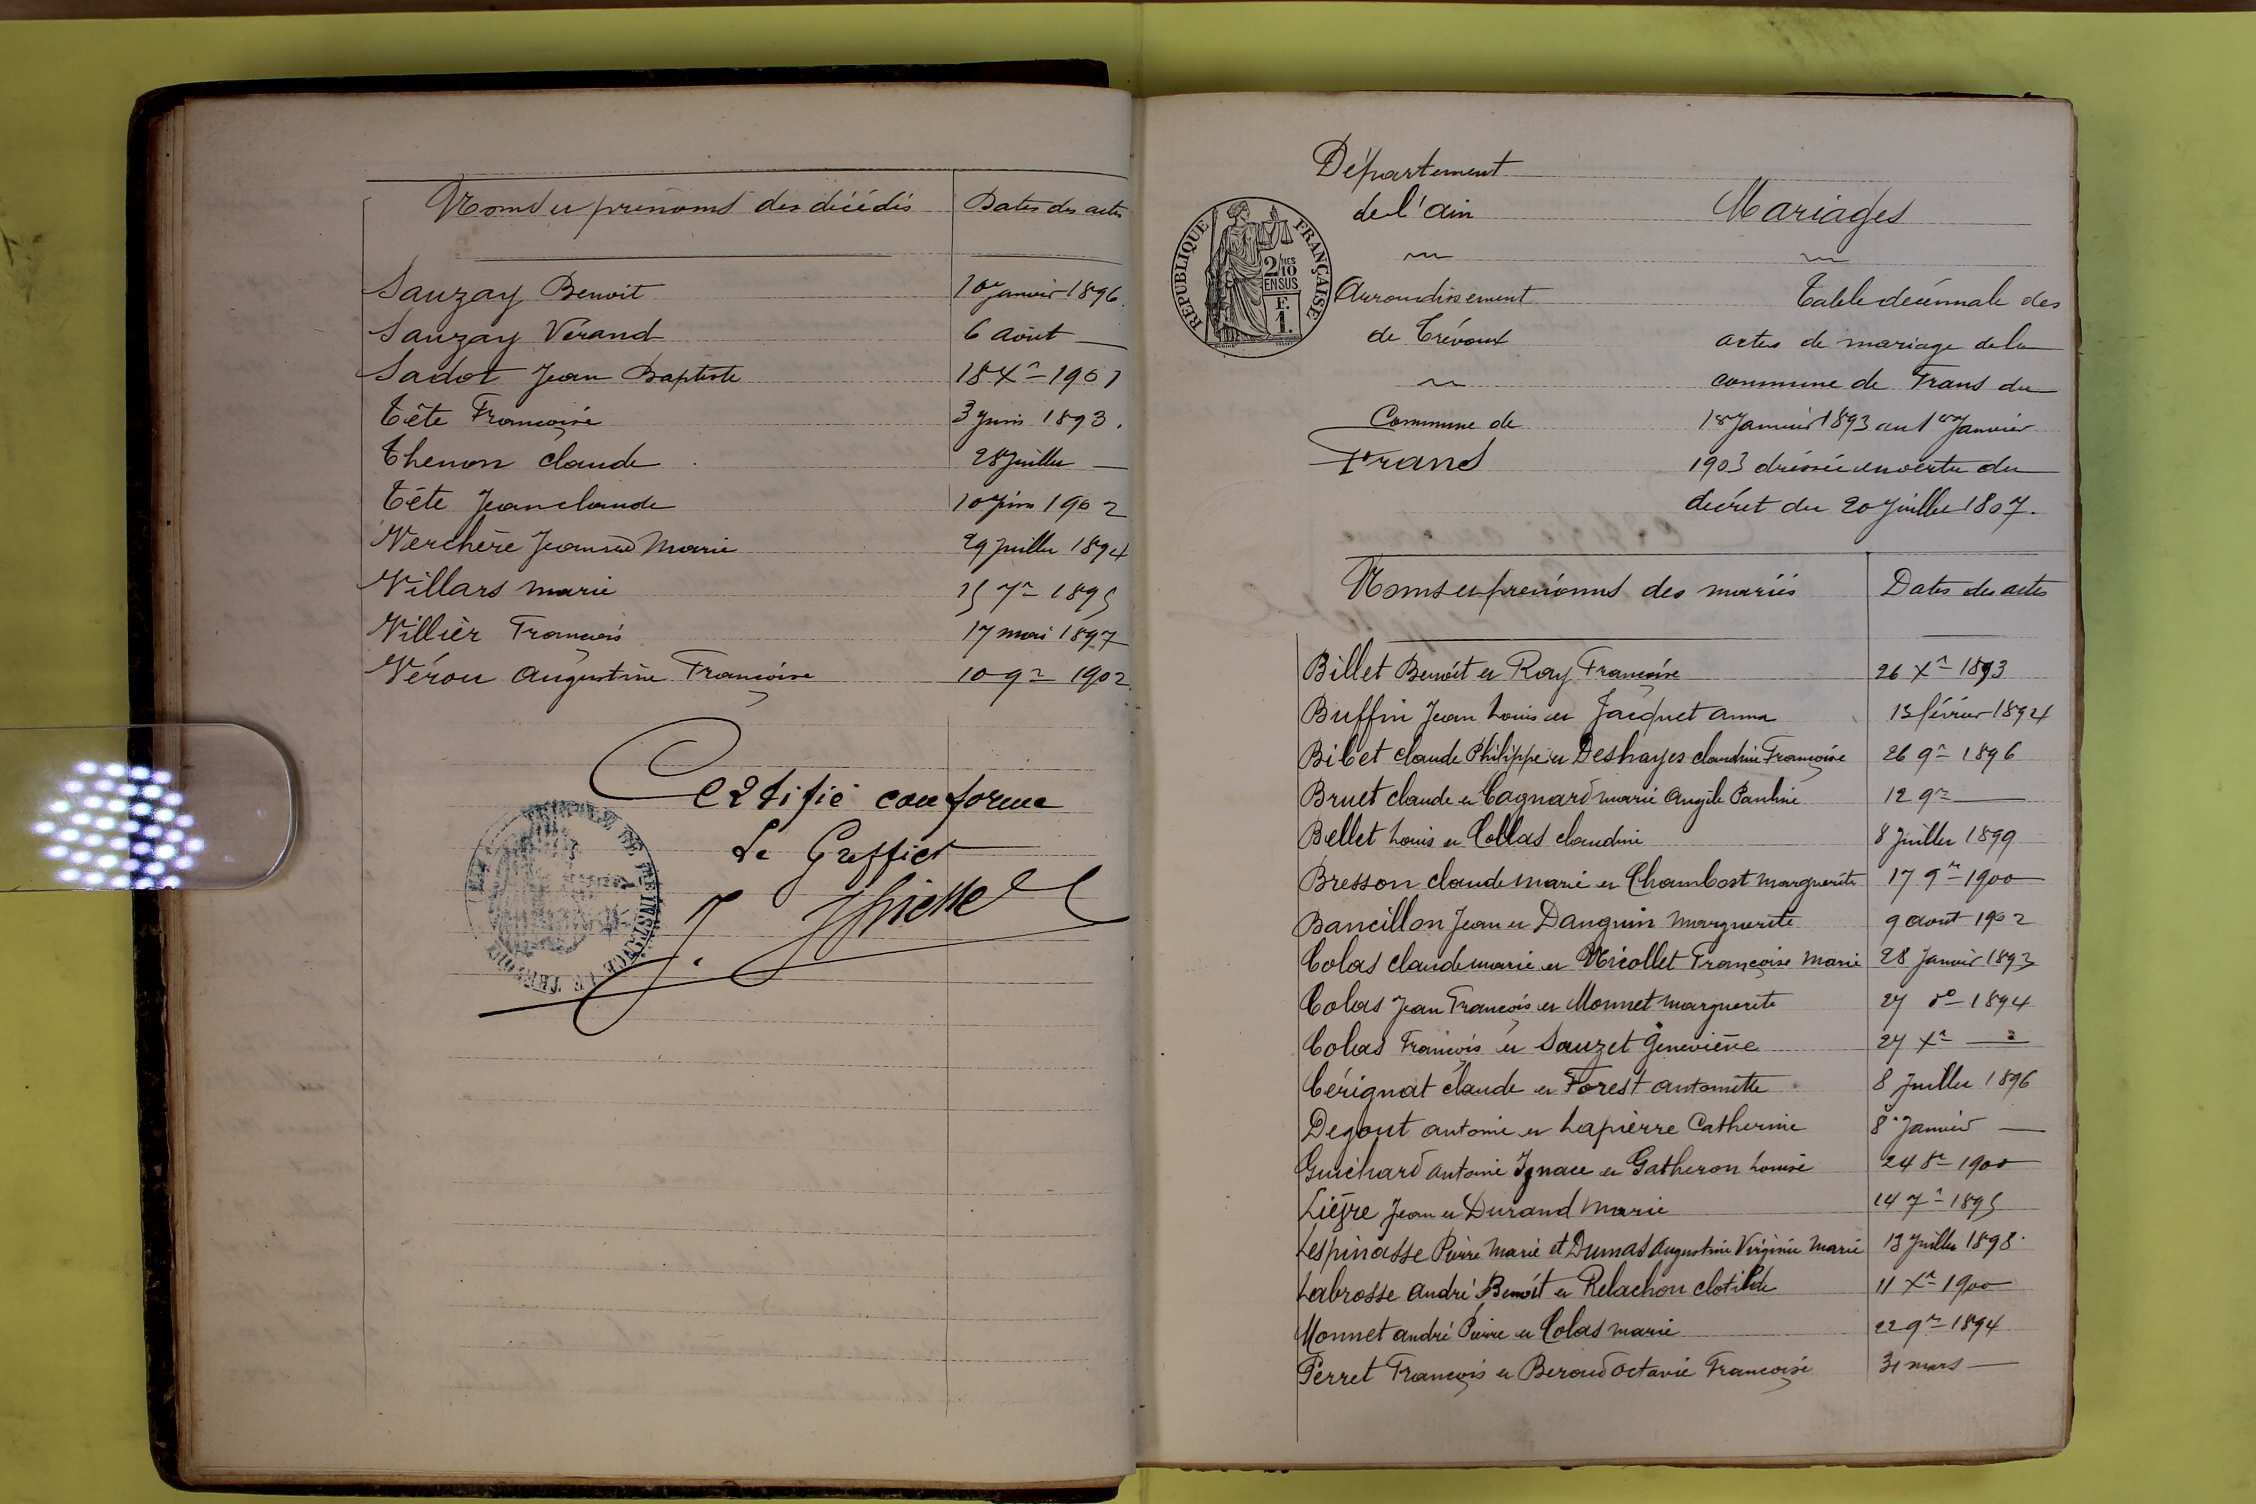 Noms et prénoms des décédés Dates des actes
Sauzay Benoit 10 janvier 1896
Sauzay Vérand 6 août —
Sadot Jean Baptiste 18 Xre 1901
Tête Françoise 3 juin 1893.
Thenon claude 28 juillet —
Tête Jean claude 10 juin 1902
Verchère Jeanne Marie 29 juillet 1894
Villars marie 15 7re 1895
Villier François 17 mai 1897
Vérou Augustine Françoise 10 9re 1902
Certifié conforme
Le Greffier
Département
de l'ain
Arrondissement
de Trévoux
Commune de
Frans
RÉPUBLIQUE FRANÇAISE
2/10 EN SUS
F.
1.
Mariages
Table décennale des
actes de mariage de la
commune de Frans du
1er Janvier 1893 au 1er Janvier
1903 dressée en vertu du
décret du 20 juillet 1807.
Noms et prénoms des mariés Dates des actes
Billet Benoît et Ray Françoise 26 Xre 1893
Buffin Jean Louis et Jacquet anna 15 février 1894
Bibet claude Philippe et Deshayes claudine Françoise 26 9re 1896
Bruet claude et Cagnard marie Angèle Pauline 12 9re —
Bellet Louis et Collas claudine 8 juillet 1899
Bresson claude marie et Chambost marguerite 17 9re 1900
Bancillon Jean et Danguin Marguerite 9 août 1902
Colas claude marie et Nicollet Françoise Marie 28 Janvier 1893
Colas Jean François et Monnet marguerite 27 do 1894
Colas François et Sauzet Geneviève 27 Xre —
Cérignat claude et Forest antoinette 8 juillet 1896
Degout antoine et Lapierre Catherine 8 Janvier —
Guichard antoine Ignace et Gatheron Louise 24 8re 1900
Lièvre Jean et Durand Marie 14 7re 1895
Lespinasse Pierre Marie et Dumas Augustine Virginie Marie 13 juillet 1898.
Labrosse andré Benoît et Relachon clotilde 11 Xre 1900
Monnet andré Pierre et Colas marie 22 9re 1894
Perret François et Beroud octavie Françoise 31 mars —